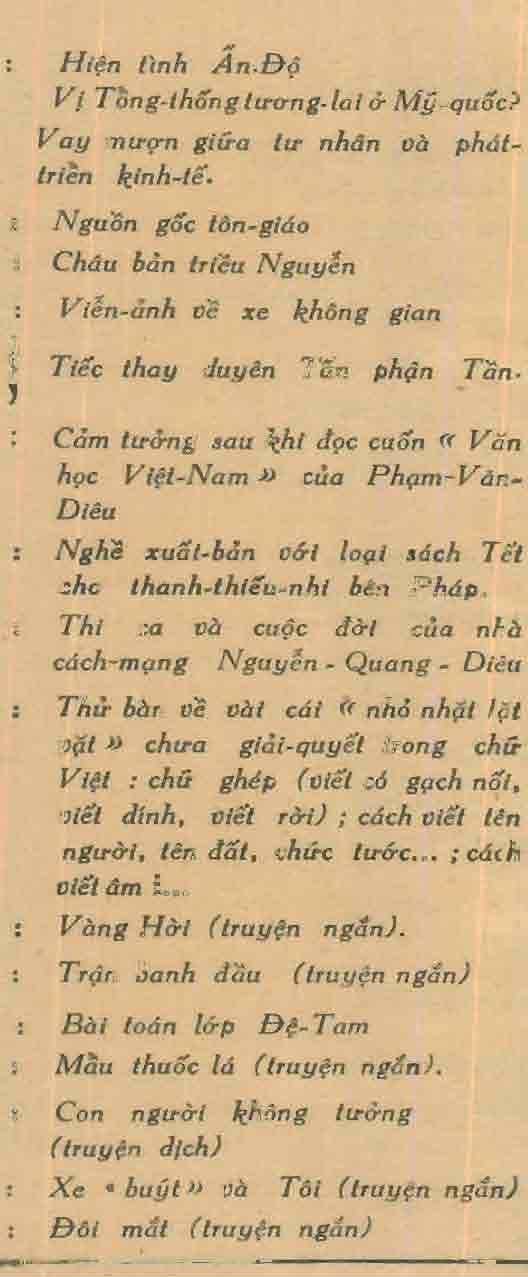 : Hiện tình Ấn-Độ
Vị Tổng-thống tương-lai ở Mỹ-quốc?
Vay mượn giữa tư nhân và phát-
triển kinh-tế.
: Nguồn gốc tôn-giáo
: Châu bản triều Nguyễn
: Viễn-ảnh về xe không gian
Tiếc thay duyên Tấn phận Tần.
: Cảm tưởng sau khi đọc cuốn « Văn
học Việt-Nam » của Phạm-Văn-
Diêu
: Nghề xuất-bản với loại sách Tết
cho thanh-thiếu-nhi bên Pháp.
: Thi ca và cuộc đời của nhà
cách-mạng Nguyễn - Quang - Diêu
: Thử bàn về vài cái « nhỏ nhặt lặt
vặt » chưa giải-quyết trong chữ
Việt : chữ ghép (viết có gạch nối,
viết dính, viết rời) ; cách viết tên
người, tên đất, chức tước... ; cách
viết âm i...
: Vàng Hời (truyện ngắn).
: Trận banh đầu (truyện ngắn)
: Bài toán lớp Đệ-Tam
: Mẫu thuốc lá (truyện ngắn).
: Con người không tưởng
(truyện dịch)
: Xe « buýt » và Tôi (truyện ngắn)
: Đôi mắt (truyện ngắn)